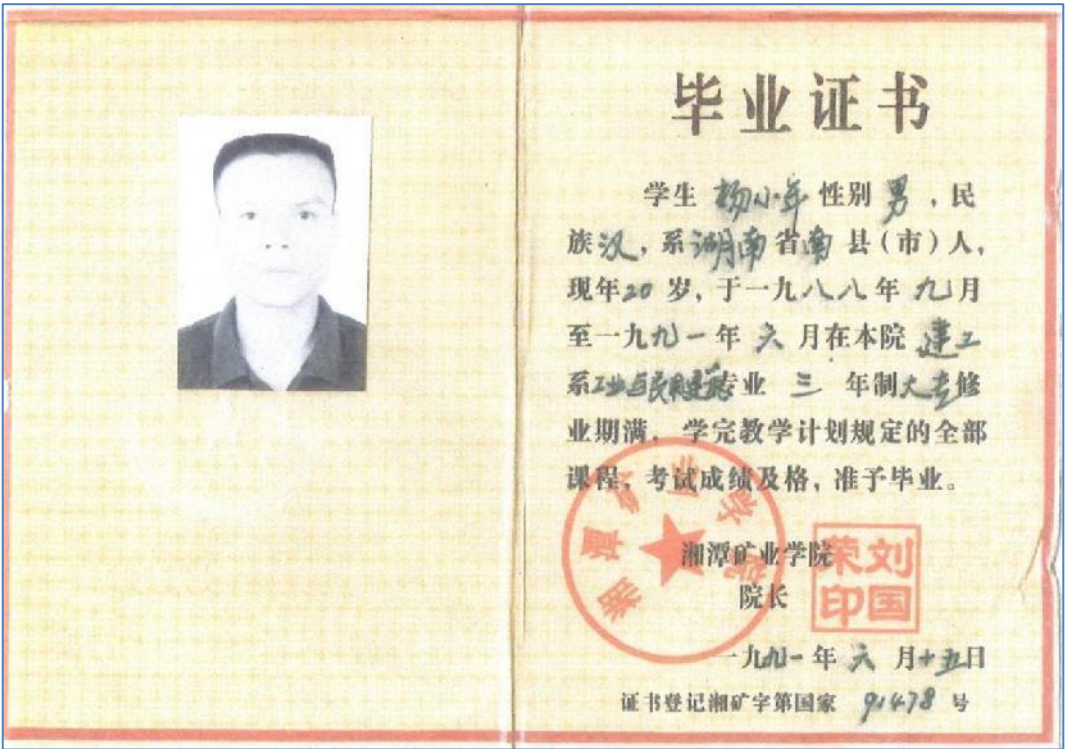 毕业证书
学生 杨小年 性别 男，民
族汉，系湖南省南县(市)人，
现年20岁，于一九八八年九月
至一九九一年六月在本院建工
系工业与民用建筑专业三年制大专修
业期满，学完教学计划规定的全部
课程，考试成绩及格，准予毕业。
湘潭矿业学院
湘潭矿业学院
院长
刘国荣印
一九九一年六月十五日
证书登记湘矿字第国家 91478 号